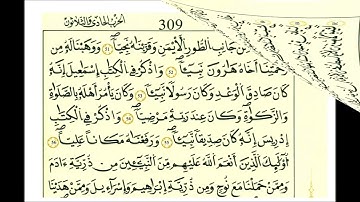 الحزب الحادي والثلاثون
309
مِن جَانِبِ الطُّورِ الْأَيْمَنِ وَقَرَّبْنَاهُ نَجِيًّا ٥٢ وَوَهَبْنَا لَهُ مِن
رَّحْمَتِنَا أَخَاهُ هَارُونَ نَبِيًّا ٥٣ وَاذْكُرْ فِي الْكِتَابِ إِسْمَاعِيلَ إِنَّهُ
كَانَ صَادِقَ الْوَعْدِ وَكَانَ رَسُولًا نَّبِيًّا ٥٤ وَكَانَ يَأْمُرُ أَهْلَهُ بِالصَّلَوٰةِ
وَالزَّكَوٰةِ وَكَانَ عِندَ رَبِّهِ مَرْضِيًّا ٥٥ وَاذْكُرْ فِي الْكِتَابِ
إِدْرِيسَ إِنَّهُ كَانَ صِدِّيقًا نَّبِيًّا ٥٦ وَرَفَعْنَاهُ مَكَانًا عَلِيًّا ٥٧
أُوْلَٰئِكَ الَّذِينَ أَنْعَمَ اللَّهُ عَلَيْهِم مِّنَ النَّبِيِّينَ مِن ذُرِّيَّةِ ءَادَمَ
وَمِمَّنْ حَمَلْنَا مَعَ نُوحٍ وَمِن ذُرِّيَّةِ إِبْرَاهِيمَ وَإِسْرَاءِيلَ وَمِمَّنْ هَدَيْنَا